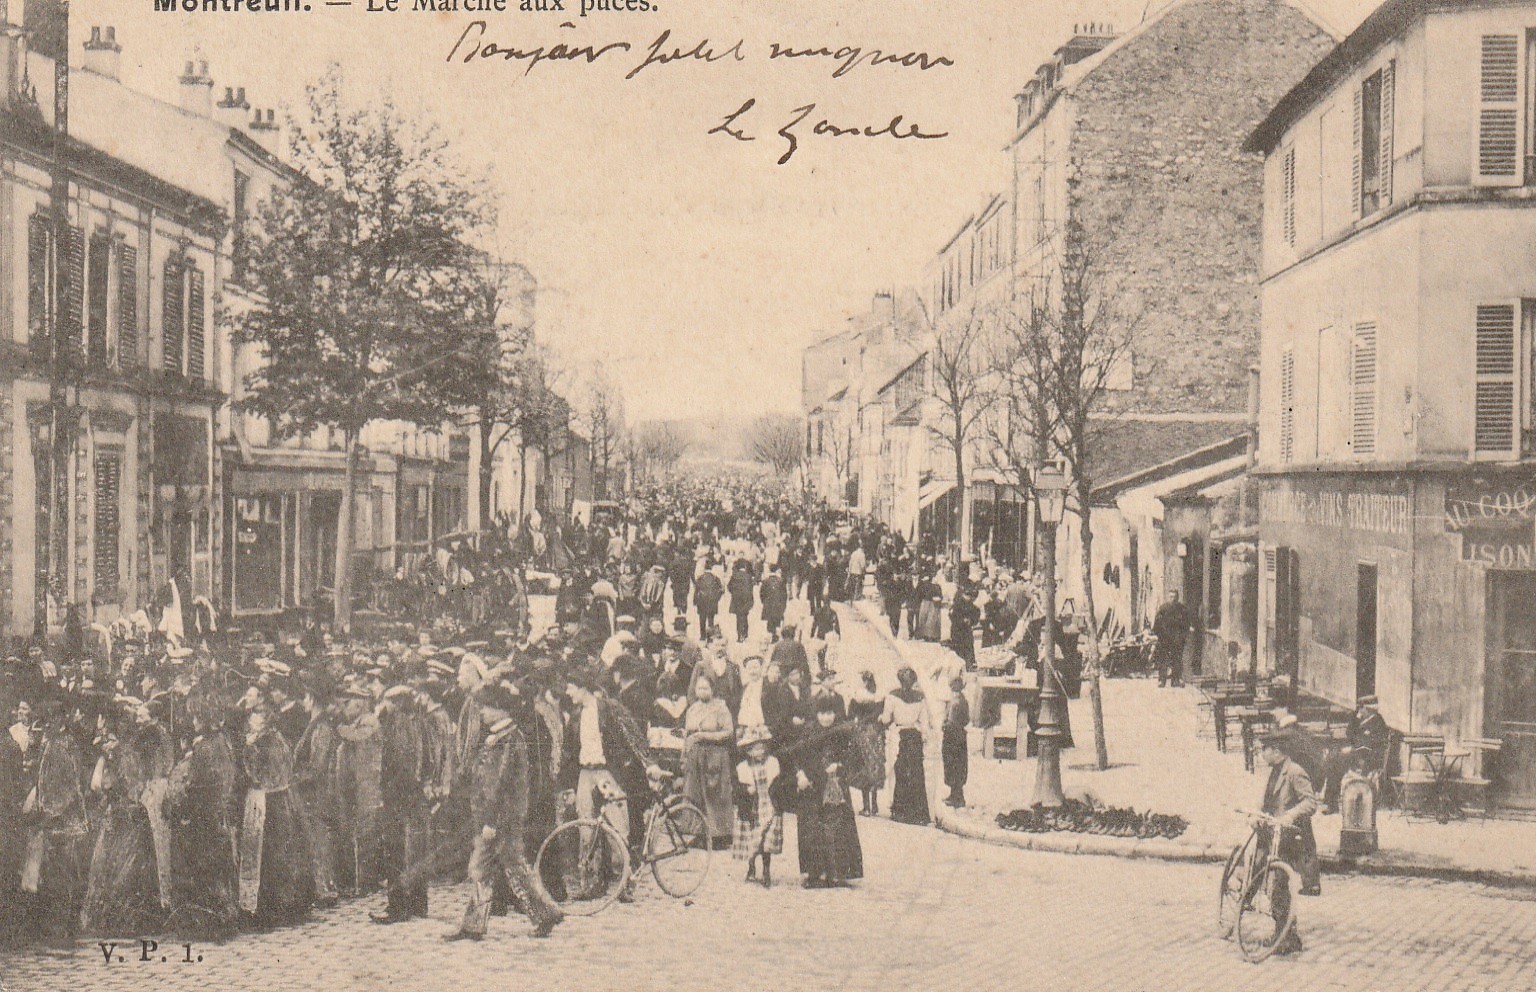 Montreuil. — Le Marché aux puces.
Bonjour
mignon
Le
VINS TRAITEUR
AU COQ
ISON
V. P. 1.